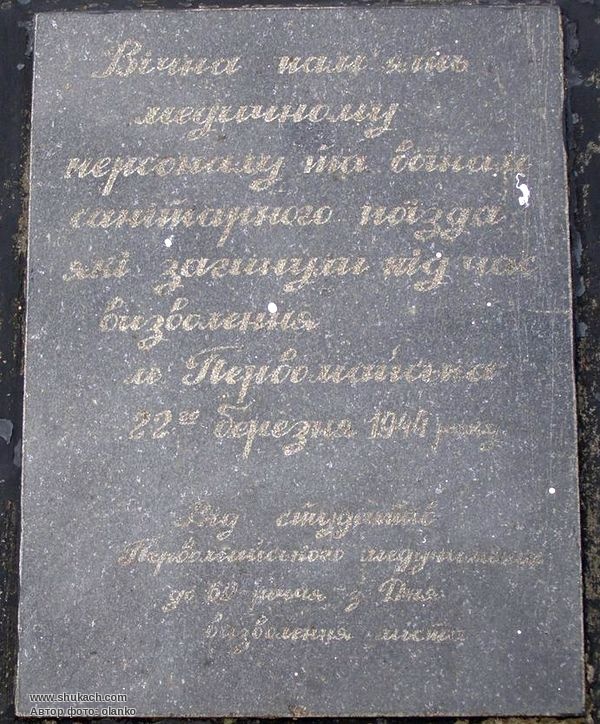 Вічна пам'ять
медичному
персоналу та воїнам
санітарного поїзда
які загинули під час
визволення
м Первомайська
22го березня 1944 року
Від студентів
Первомайського медучилища
до 60-річчя з Дня
визволення міста
www.shukach.com
Автор фото: olanko